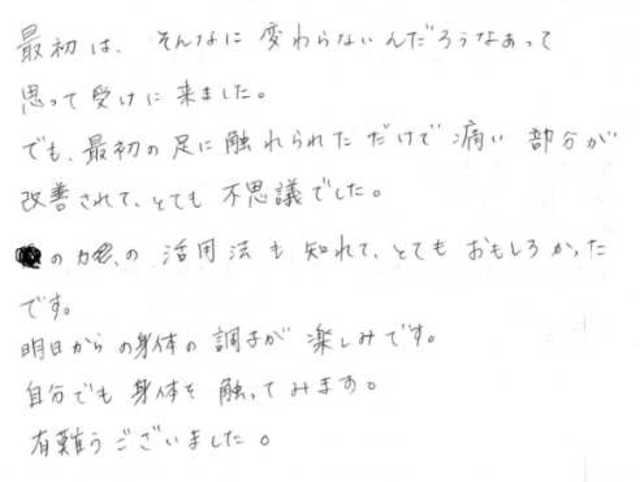 最初は、そんなに変わらないんだろうなぁって
思って受けに来ました。
でも、最初の足に触れられただけで痛い部分が
改善されて、とても不思議でした。
の の活用法も知れて、とてもおもしろかった
です。
明日からの身体の調子が楽しみです。
自分でも身体を触ってみます。
有難うございました。